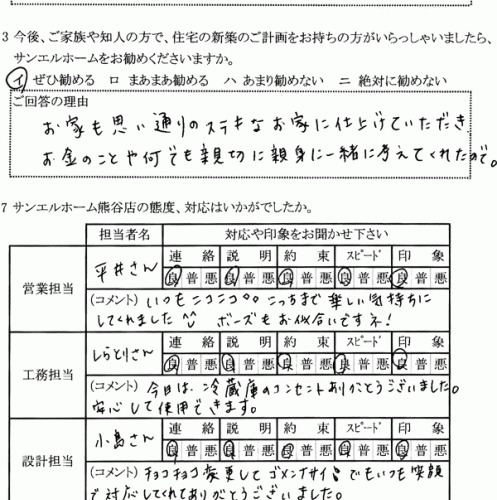 3 今後、ご家族や知人の方で、住宅の新築のご計画をお持ちの方がいらっしゃいましたら、
サンエルホームをお勧めくださいますか。
イ ぜひ勧める ロ まあまあ勧める ハ あまり勧めない ニ 絶対に勧めない
ご回答の理由
お家も思い通りのステキなお家に仕上げていただき
お金のことや何でも親切に親身に一緒に考えてくれたので。
7 サンエルホーム熊谷店の態度、対応はいかがでしたか。
担当者名 対応や印象をお聞かせ下さい
営業担当 平井さん 連絡 説明 約束 スピード 印象
良 普 悪 良 普 悪 良 普 悪 良 普 悪 良 普 悪
(コメント) いつもニコニコ°° こっちまで楽しい気持ちに
してくれました ボーズもお似合いですネ!
工務担当 しらとりさん 連絡 説明 約束 スピード 印象
良 普 悪 良 普 悪 良 普 悪 良 普 悪 良 普 悪
(コメント) 今日は、冷蔵庫のコンセントありがとうございました。
安心して使用できます。
設計担当 小島さん 連絡 説明 約束 スピード 印象
良 普 悪 良 普 悪 良 普 悪 良 普 悪 良 普 悪
(コメント) チョコチョコ変更してゴメンナサイ でもいつも笑顔
で対応してくれてありがとうございました。